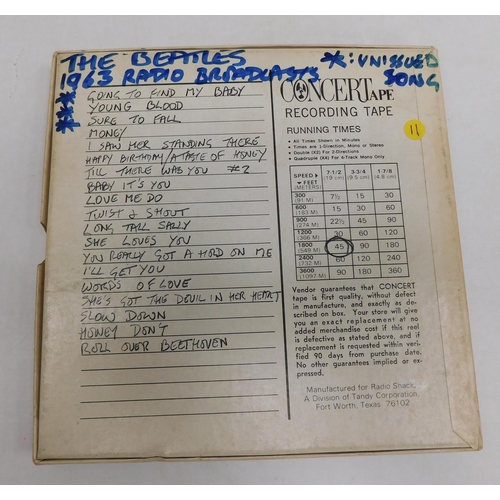 THE BEATLES
1963 RADIO BROADCASTS
*: UNISSUED SONG
* GOING TO FIND MY BABY
* YOUNG BLOOD
* SURE TO FALL
MONEY
I SAW HER STANDING THERE
HAPPY BIRTHDAY/A TASTE OF HONEY
TILL THERE WAS YOU #2
BABY IT'S YOU
LOVE ME DO
TWIST & SHOUT
LONG TALL SALLY
SHE LOVES YOU
YOU REALLY GOT A HOLD ON ME
I'LL GET YOU
WORDS OF LOVE
SHE'S GOT THE DEVIL IN HER HEART
SLOW DOWN
HONEY DON'T
ROLL OVER BEETHOVEN
CONCERTAPE
RECORDING TAPE
11
RUNNING TIMES
• All Times Shown in Minutes
• Times are 1-Direction, Mono or Stereo
• Double (X2) For 2-Directions
• Quadruple (X4) For 4-Track Mono Only
SPEED 7-1/2 3-3/4 1-7/8
FEET (19 cm) (9.5 cm) (4.8 cm)
(METERS)
300 7½ 15 30
(91 M)
600 15 30 60
(183 M)
900 22½ 45 90
(274 M)
1200 30 60 120
(366 M)
1800 45 90 180
(549 M)
2400 60 120 240
(732 M)
3600 90 180 360
(1097 M)
Vendor guarantees that CONCERT
tape is first quality, without defect
in manufacture, and exactly as de-
scribed on box. Your store will give
you an exact replacement at no
added merchandise cost if this reel
is defective as stated above, and if
replacement is requested within veri-
fied 90 days from purchase date.
No other guarantees implied or ex-
pressed.
Manufactured for Radio Shack,
A Division of Tandy Corporation
Fort Worth, Texas 76102